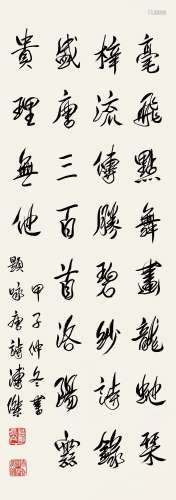 毫飛點舞畫龍虵琹
梓流傳勝碧紗詩錄
盛唐三百首洛陽
貴理無他
甲子仲冬書
題咏唐詩溥傑